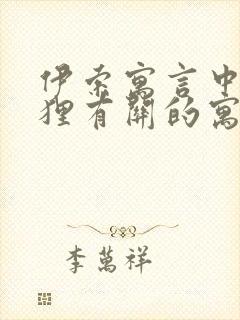 伊索寓言中
狸有關的寓
李萬祥